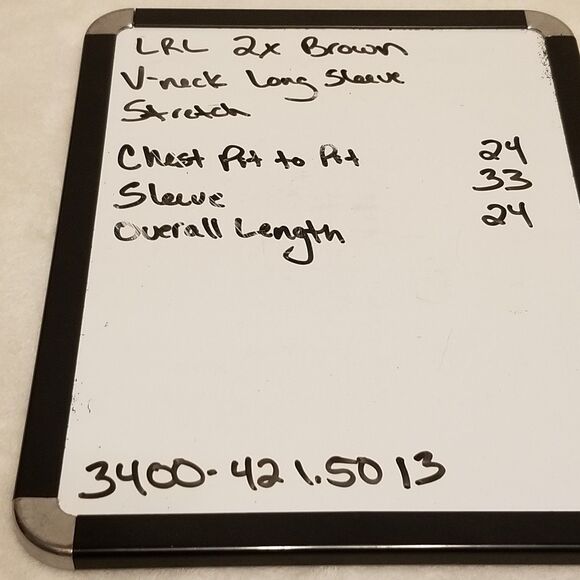 LRL 2x Brown
V-neck Long Sleeve
Stretch
Chest Pit to Pit 24
Sleeve 33
Overall Length 24
3400-421.50 13